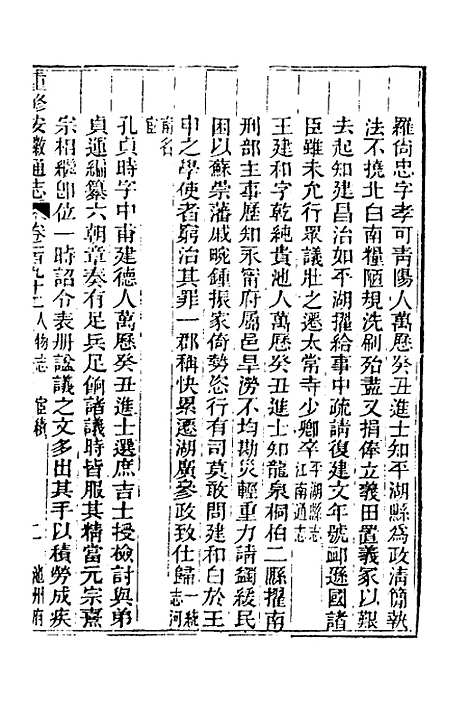 羅尚忠字孝可靑陽人萬曆癸丑進士知平湖縣爲政淸簡執
法不撓北白南糧陋規洗刷殆盡又捐俸立義田置義冢以艱
去起知建昌治如平湖擢給事中疏請復建文年號䘏遜國諸
臣雖未允行眾議壯之遷太常寺少卿卒平湖縣志江南通志
王建和字乾純貴池人萬曆癸丑進士知龍泉桐柏二縣擢南
刑部主事歷知永甯府屬邑旱澇不均勘災輕重力請蠲緩民
困以蘇崇藩戚畹鍾振家倚勢恣行有司莫敢問建和白於王
申之學使者窮治其罪一郡稱快累遷湖廣參政致仕歸一統志河
南名宦
孔貞時字中甫建德人萬曆癸丑進士選庶吉士授檢討與弟
貞運編纂六朝章奏有足兵足餉諸議時皆服其精當元宗熹
宗相繼卽位一時詔令表册諡議之文多出其手以積勞成疾
重修安徽通志 卷一百九十二 人物志 宦績 二 池州府